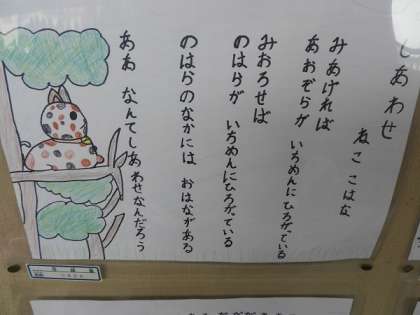 しあわせ
ねこ こはな
みあげれば
あおぞらが いちめんにひろがっている
みおろせば
のはらが いちめんにひろがっている
のはらのなかには おはながある
ああ なんてしあわせなんだろう